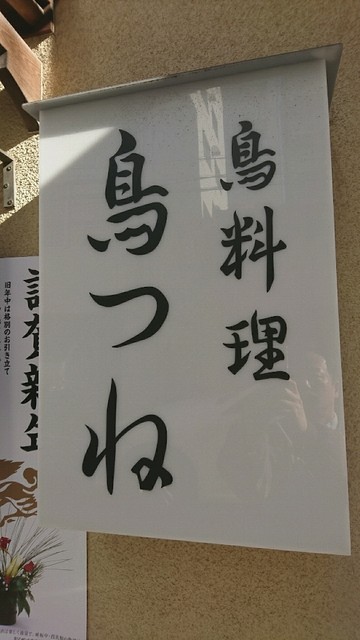 鳥料理
鳥つね
謹賀新年
旧年中は格別のお引き立て